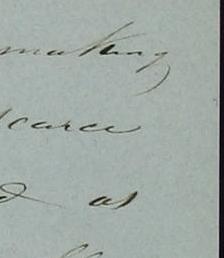 making
scarce
as